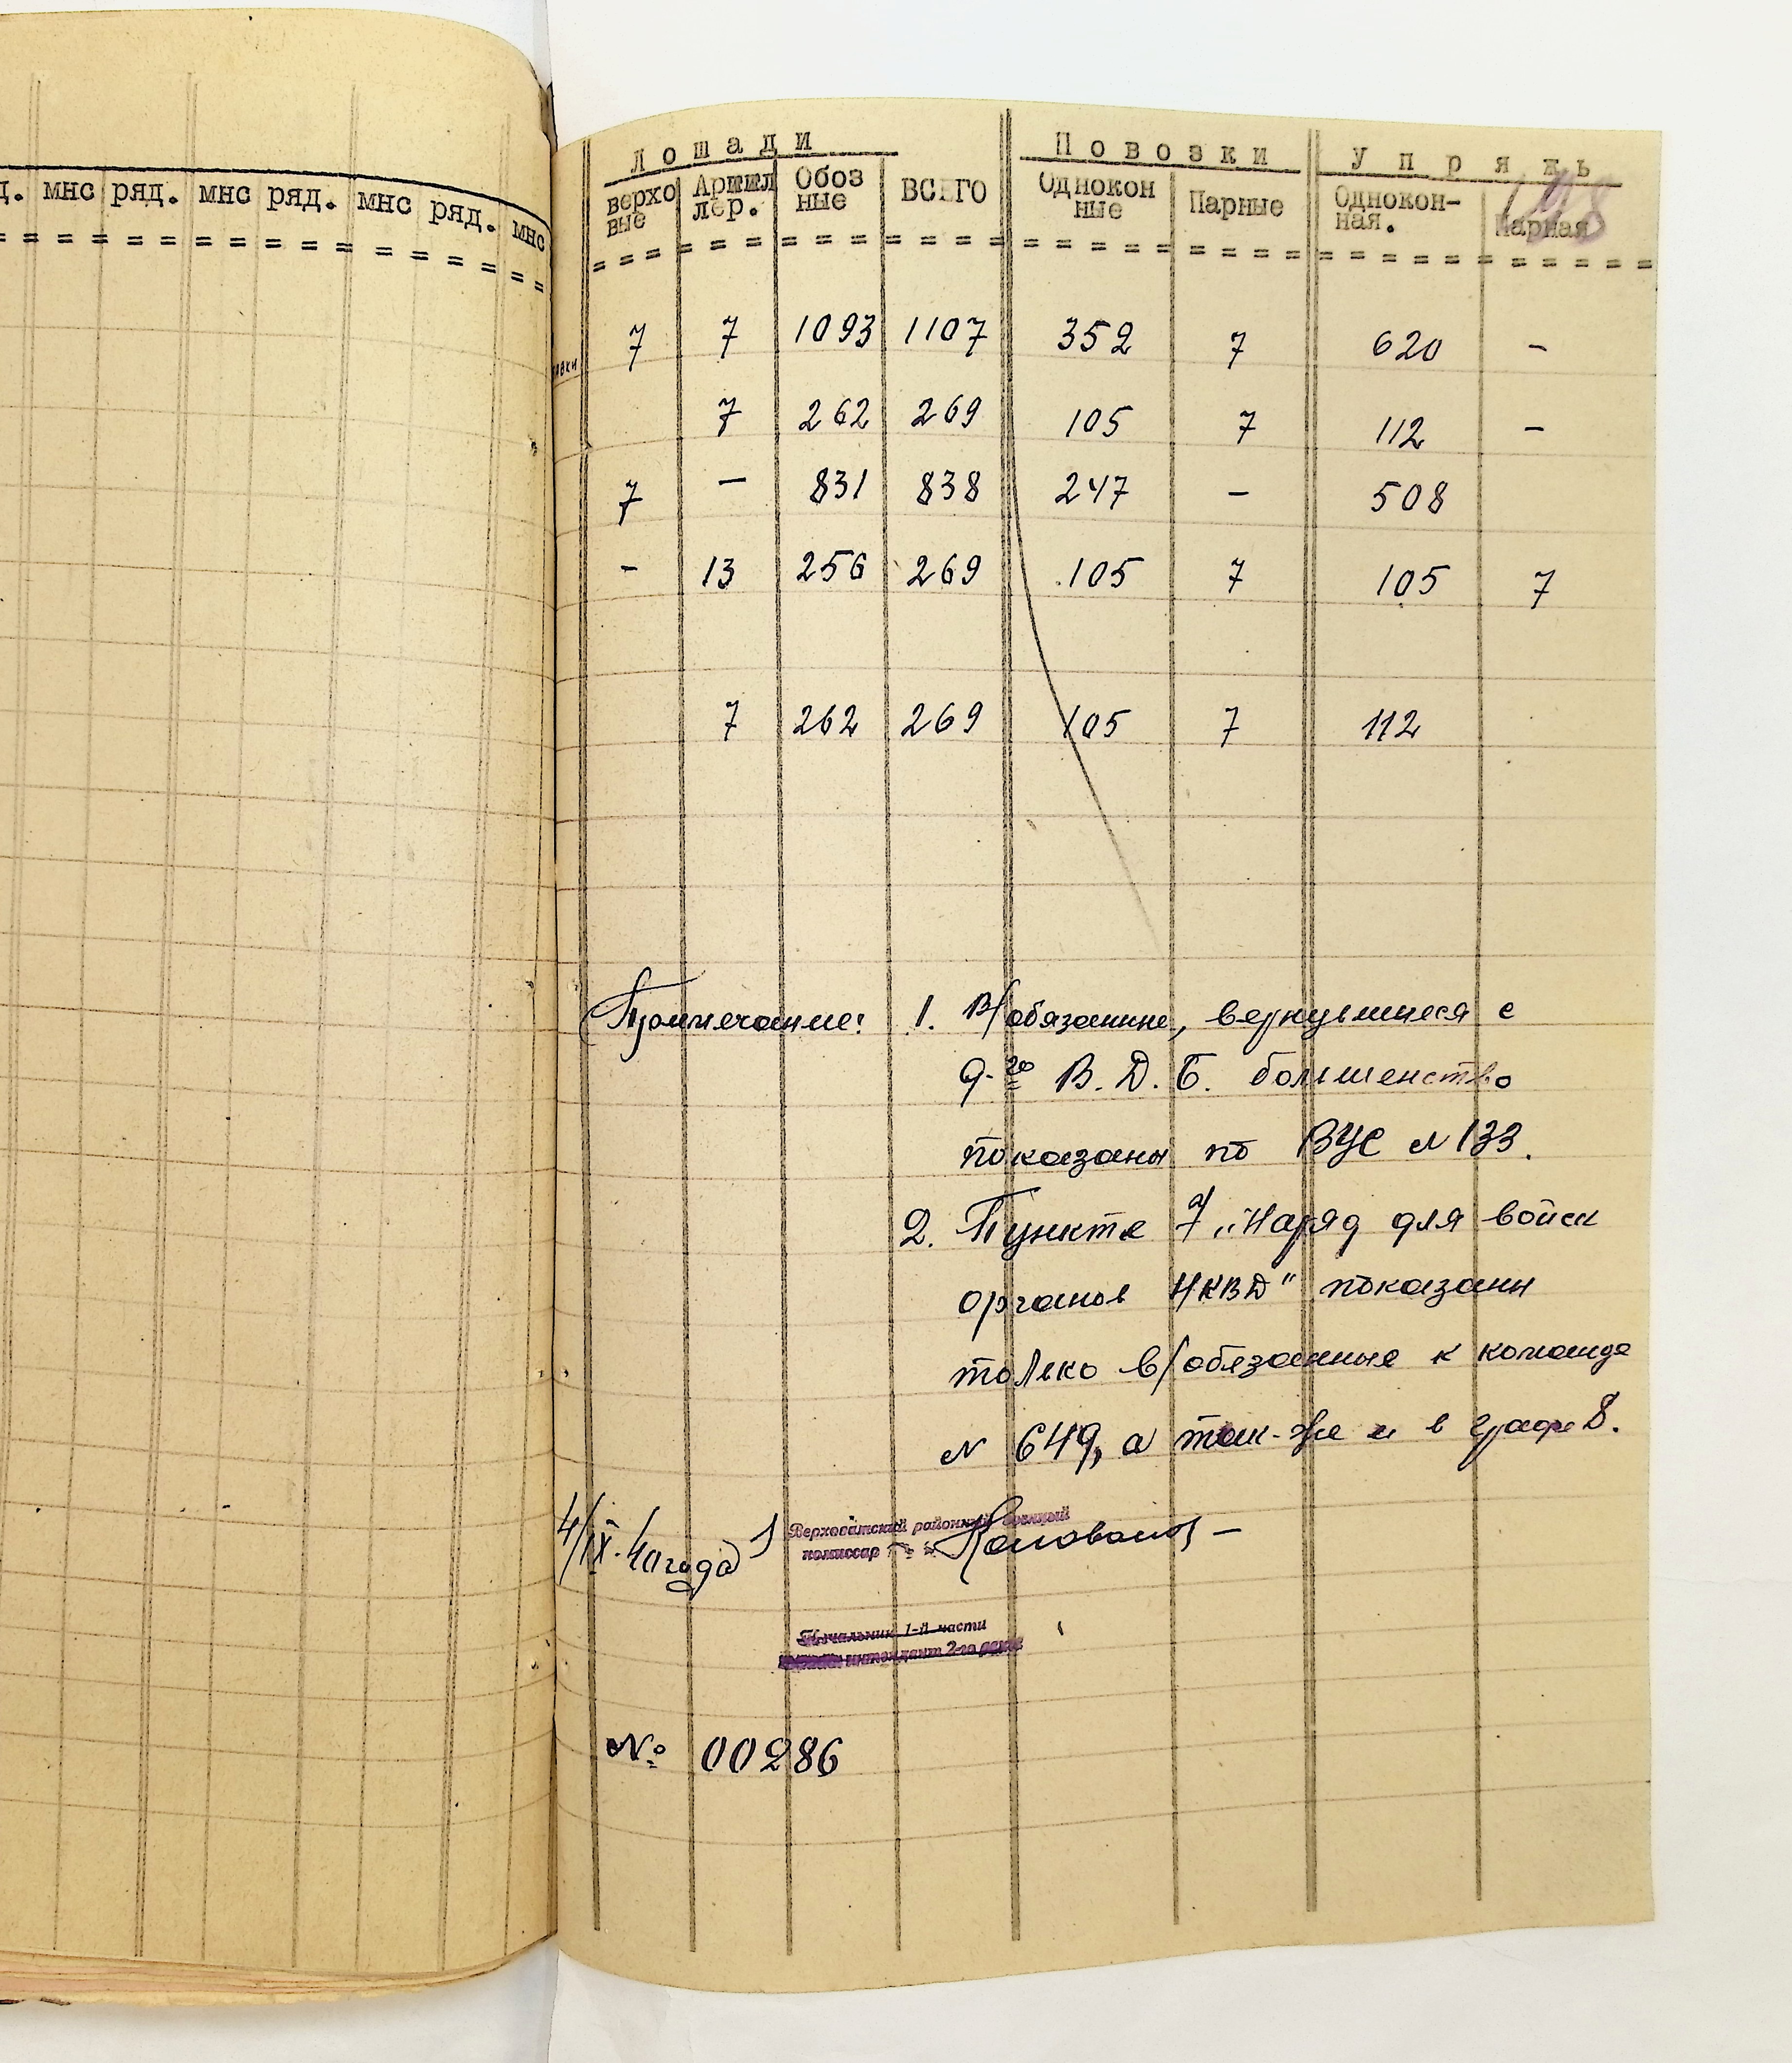 мнс ряд. мнс ряд. мнс ряд. мнс
Лошади Повозки Упряжь
верхо вые Артилл лер. Обоз ные ВСЕГО Однокон ные Парные Однокон- ная. Парная
7 7 1093 1107 352 7 620 -
7 262 269 105 7 112 -
7 - 831 838 247 - 508
- 13 256 269 105 7 105 7
7 262 269 105 7 112
Примечание: 1. В/обязанные, вернувшиеся с
9-го В.Д.Б. большенство
показаны по ВУС N 133.
2. Пункте 7 „Наряд для войск
органов НКВД" показаны
только в/обязанные к команде
N 649, а так-же и в граф 8.
4/IX-40 года
Верхо районный военный
комиссар
Начальник 1-й части
интендант 2-го ранга
№ 00286